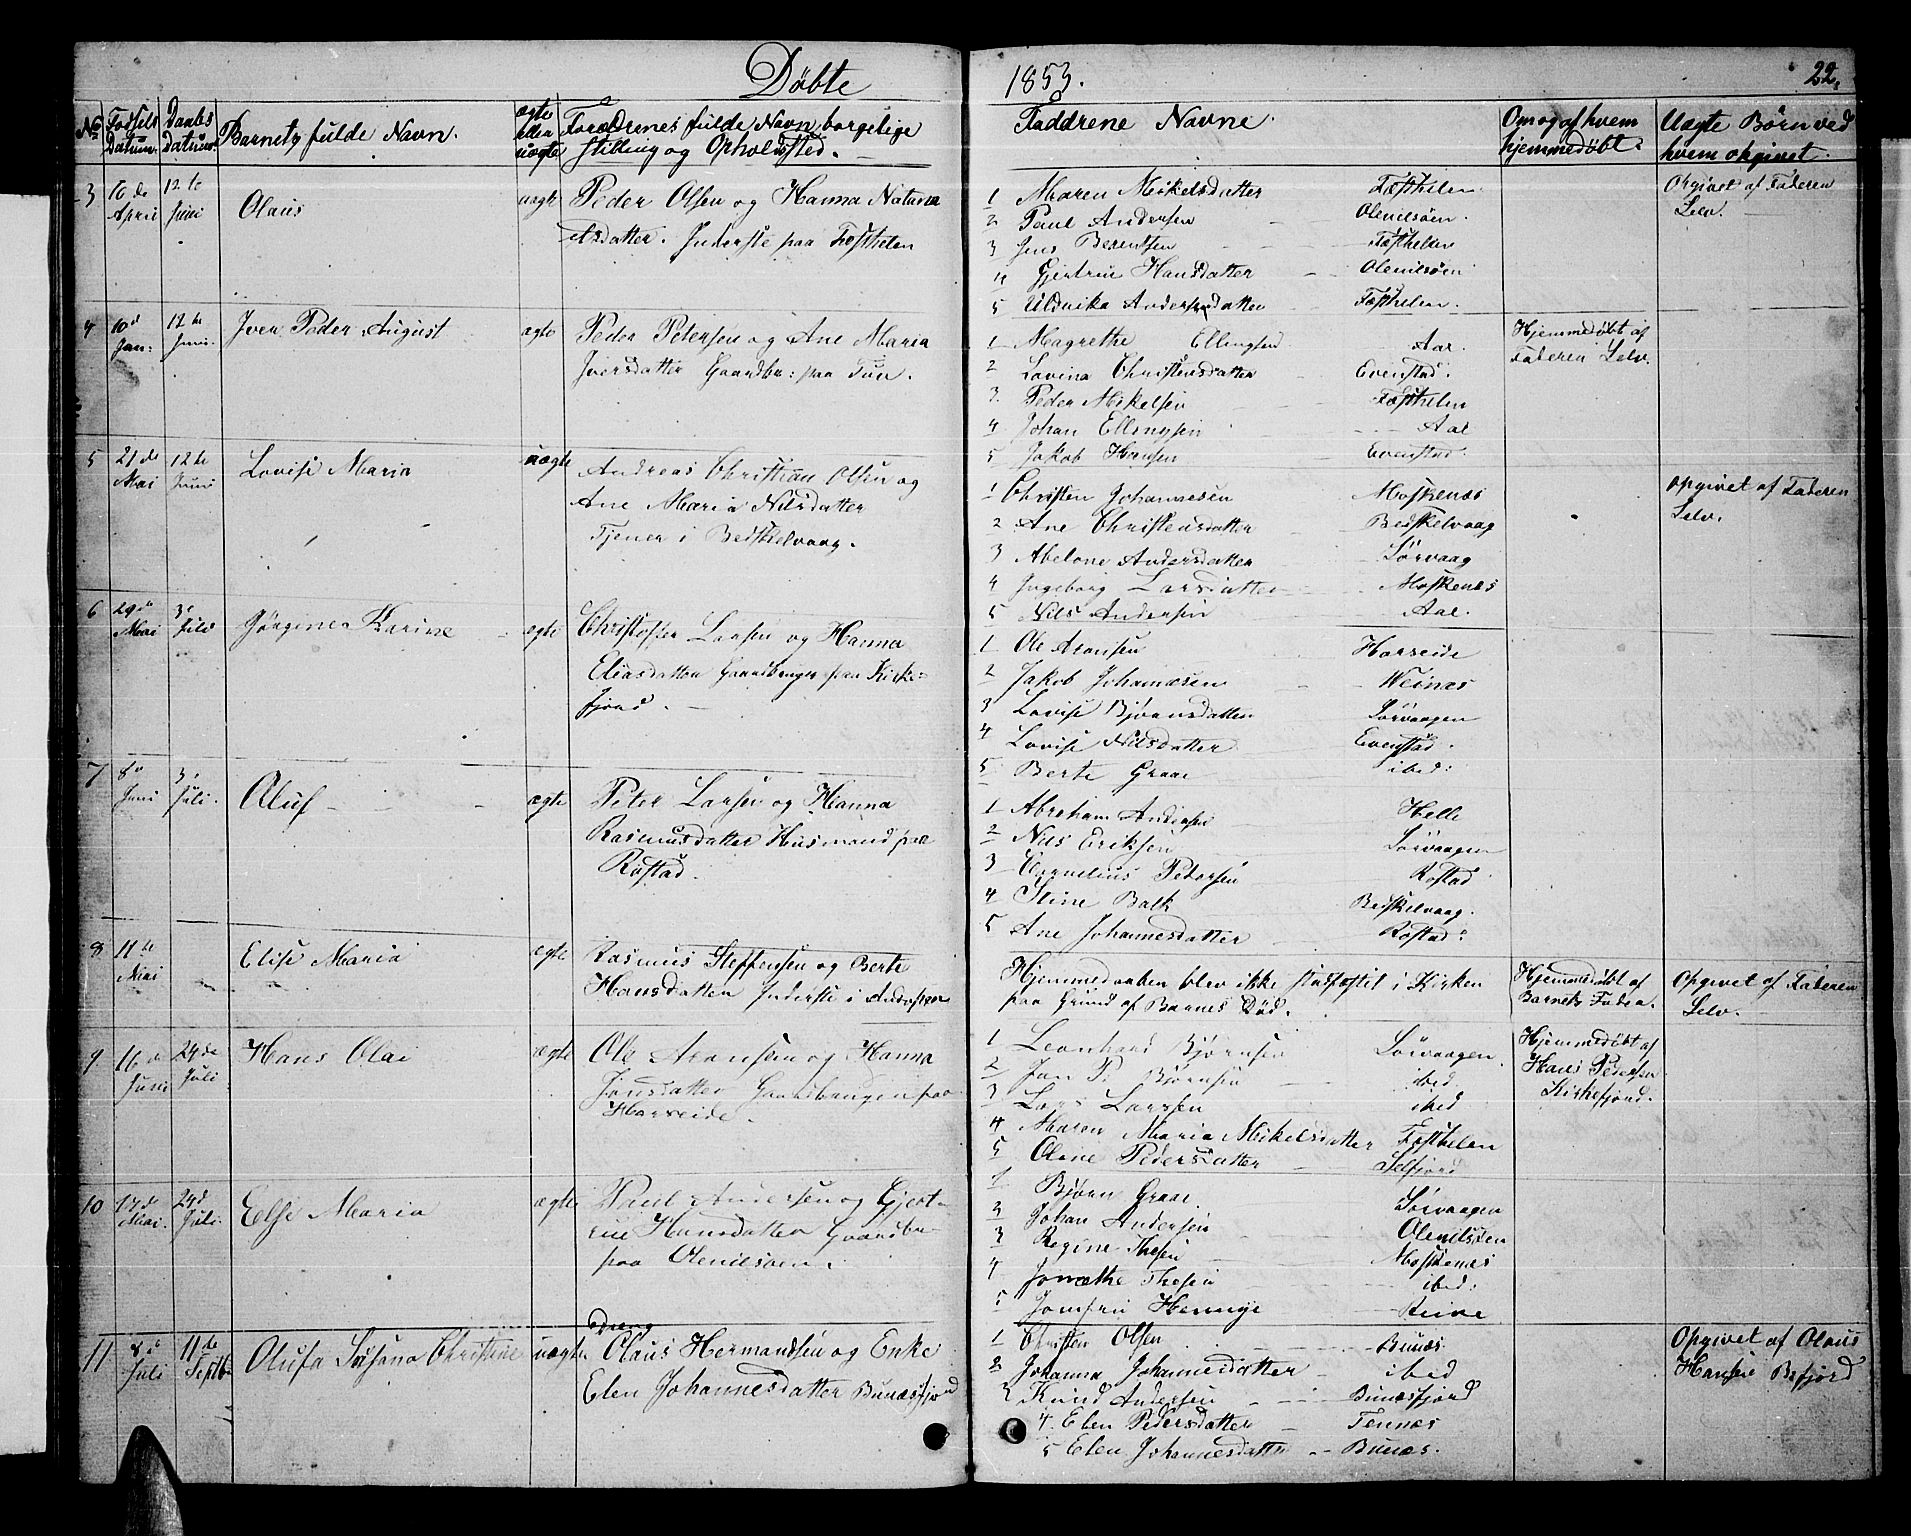 Døbte
1853.
22.
No Fødsels Datum. Daabs Datum. Barnets fulde Navn. ægte eller uægte Forældrenes fulde Navn borgelige Stilling og Opholdsted. Faddrene Navne. Om og af hvem hjemmedøbt. Uægte Børn ved hvem opgivet.
3 April 12te Juni Olaus uægte Peder Olsen og Hanna
Inderste paa Festhelen
1 Maren Mikelsdatter Festhelen
2 Paul Andersen Olenilsøen.
3 Jens Berentsen Festhelen
4 Gjertrue Hansdatter Olenilsøen
5 Uldrika Andersdatter Festhelen.
Opgivet af Faderen
Selv.
4 10d Jan: 12te Juni Iver Peder August ægte Peder Petersen og Ane Maria
Iversdatter Gaardbr: paa Tun.
1 Magrethe Ellingsen Aar.
2 Lovina Christensdatter Evenstad.
3 Peder Mikelsen Festhelen
4 Johan Ellingsen Aar
5 Jakob Hansen Evenstad.
Hjemmedøbt af
Faderen Selv.
5 21de Mai 12te Juni Lovise Maria uægte Andreas Christian Olsen og
Ane Maria Nilsdatter
Tjener i Bedskelvaag.
1 Christen Johannesen Moskenæs
2 Ane Christensdatter Bedskelvaag
3 Abelone Andersdatter Sørvaag
4 Ingeborg Larsdatter Moskenæs
5 Nils Andersen Aar.
Opgivet af Faderen
Selv.
6 29de Mai 3e Juli Jørgine Karine ægte Christoffer Larsen og Hanna
Eliasdatter Gaardbruger paa Kirke-
fjord.
1 Ole Aronsen Horseide
2 Jakob Johannesen
3 Lovise Bjørnsdatter Sørvaagen
4 Lovise Nilsdatter Evenstad.
5 Berte Graae ibed:
7 8d Juni 3. Juli. Oluf ægte Peter Larsen og Hanna
Rasmusdatter Husmand paa
Rostad.
1 Abraham Andersen Helle
2 Nils Eriksen Sørvaagen
3 Cornelius Petersen Rostad
4 Stine Balk Bedskelvaag.
5 Ane Johannesdatter Rostad:
8 11te Mai Elise Maria ægte Rasmus Steffensen og Berte
Hansdatter Inderste i Andopen
Hjemmedaaben blev ikke stadfæstet i Kirken
paa Grund af Barnes Død.
Hjemmedøbt af
Barnets Fader.
Opgivet af Faderen
Selv.
9 16de Juni 24de Juli Hans Olai ægte Ole Aronsen og Hanna
Jonsdatter Gaardbruger paa
Horseide.
1 Leonhard Bjørnsen Sørvaagen
2 Jan P. Bjørnsen ibed
3 Lars Larsen ibed
4 Maren Maria Mikelsdatter Festhelen
5 Olene Pedersdatter Selfjord
Hjemmedøbt af
Hans Pedersen
Kirkefjord.
10 17d Mai. 24d Juli Else Maria ægte Paul Andersen og Gjert-
rue Hansdatter Gaardbr-
paa Olenilsøen.
1 Bjørn Graae Sørvaagen
2 Johan Andersen Olenilsøen
3 Regine Thesen Moskenæs
4 Jonethe Thesen ibed:
5 Jomfru Hennyge Reine
11 8d Juli 11te Septbr Olufa Susana Christine uægte Dreng
Olaus Hermandsen og Enke
Elen Johannesdatter Bunæsfjord
1 Christen Olsen Bunæs.
2 Johanna Johannesdatter ibed
3 Knud Andersen Bunæsfjord
4. Elen Pedersdatter Tennæs
5 Elen Johannesdatter Bunæs.
Opgivet af Olaus
Hansen